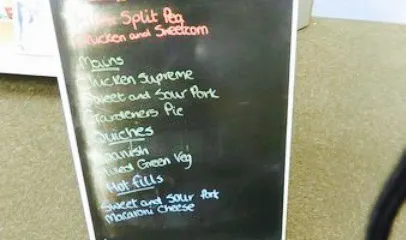 Split Pea
Chicken and Sweetcorn
Mains
Chicken Supreme
Sweet and Sour Pork
Gardeners Pie
Quiches
Spanish
Green Veg
Hot fills
Sweet and Sour Pork
Macaroni Cheese